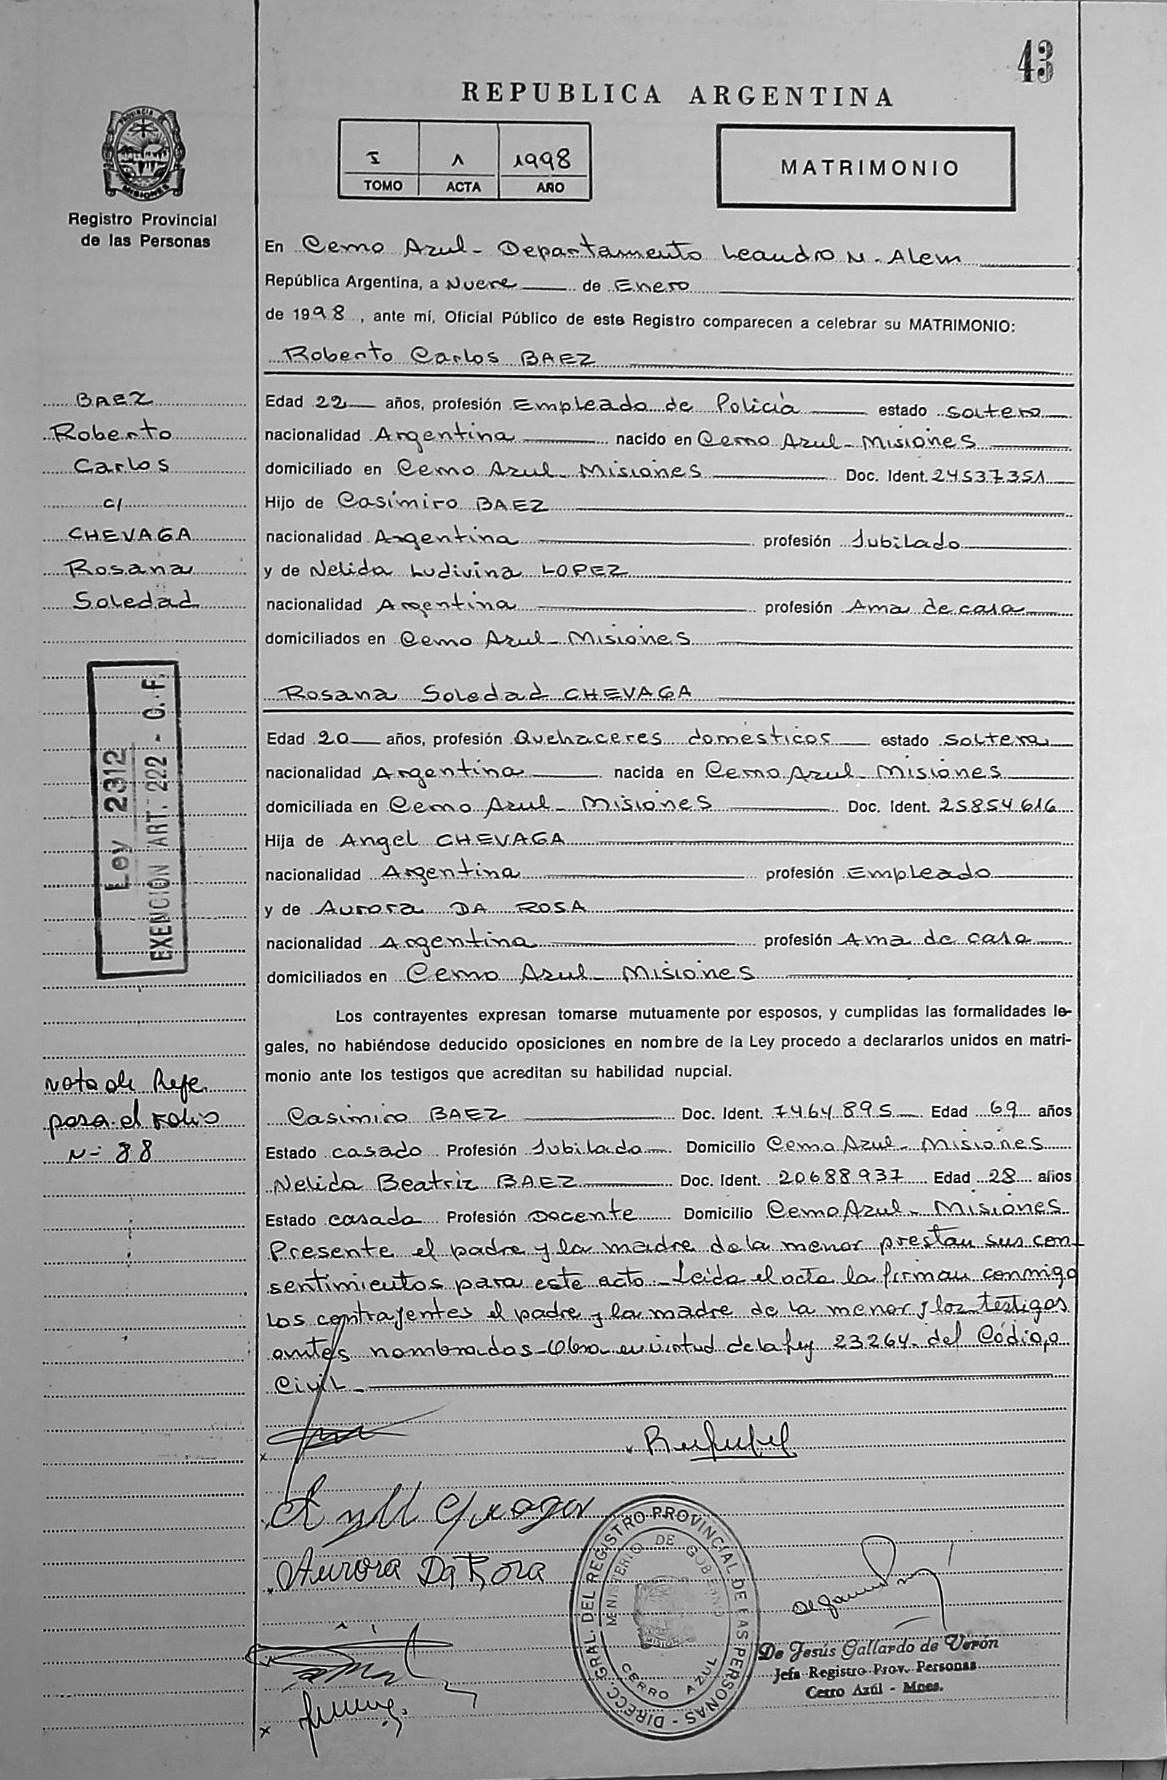 43
REPUBLICA ARGENTINA
PROVINCIA DE MISIONES
Registro Provincial
de las Personas
I 1 1998
TOMO ACTA AÑO
MATRIMONIO
En Cerro Azul - Departamento Leandro N. Alem
República Argentina, a Nueve de Enero
de 1998, ante mí, Oficial Público de este Registro comparecen a celebrar su MATRIMONIO:
Roberto Carlos BAEZ
BAEZ
Roberto
Carlos
c/
CHEVAGA
Rosana
Soledad
Edad 22 años, profesión Empleado de Policía estado soltero
nacionalidad Argentina nacido en Cerro Azul - Misiones
domiciliado en Cerro Azul - Misiones Doc. Ident. 24537351
Hijo de Casimiro BAEZ
nacionalidad Argentina profesión Jubilado
y de Nelida Ludivina LOPEZ
nacionalidad Argentina profesión Ama de casa
domiciliados en Cerro Azul - Misiones
Rosana Soledad CHEVAGA
Ley 2312
EXENCION ART. 222 - C. F.
Edad 20 años, profesión Quehaceres domésticos estado soltera
nacionalidad Argentina nacida en Cerro Azul - Misiones
domiciliada en Cerro Azul - Misiones Doc. Ident. 25854616
Hija de Angel CHEVAGA
nacionalidad Argentina profesión Empleado
y de Aurora DA ROSA
nacionalidad Argentina profesión Ama de casa
domiciliados en Cerro Azul - Misiones
Los contrayentes expresan tomarse mutuamente por esposos, y cumplidas las formalidades le-
gales, no habiéndose deducido oposiciones en nombre de la Ley procedo a declararlos unidos en matri-
monio ante los testigos que acreditan su habilidad nupcial.
Nota de Refe.
pasa al Folio
N- 88
Casimiro BAEZ Doc. Ident. 7464895 Edad 69 años
Estado casado Profesión Jubilado Domicilio Cerro Azul - Misiones
Nelida Beatriz BAEZ Doc. Ident. 20688937 Edad 28 años
Estado casada Profesión Docente Domicilio Cerro Azul - Misiones
Presente el padre y la madre de la menor prestan sus con-
sentimientos para este acto - Leida el acta la firman conmigo
los contrayentes el padre y la madre de la menor y los testigos
antes nombrados - Obra en virtud de la Ley 23264 - del Código
Civil
Aurora Da Rosa
DIRECC. GRAL. DEL REGISTRO PROVINCIAL DE LAS PERSONAS -
MINISTERIO DE GOBIERNO
CERRO AZUL
De Jesús Gallardo de Verón
Jefa Registro Prov. Personas
Cerro Azúl - Mnes.